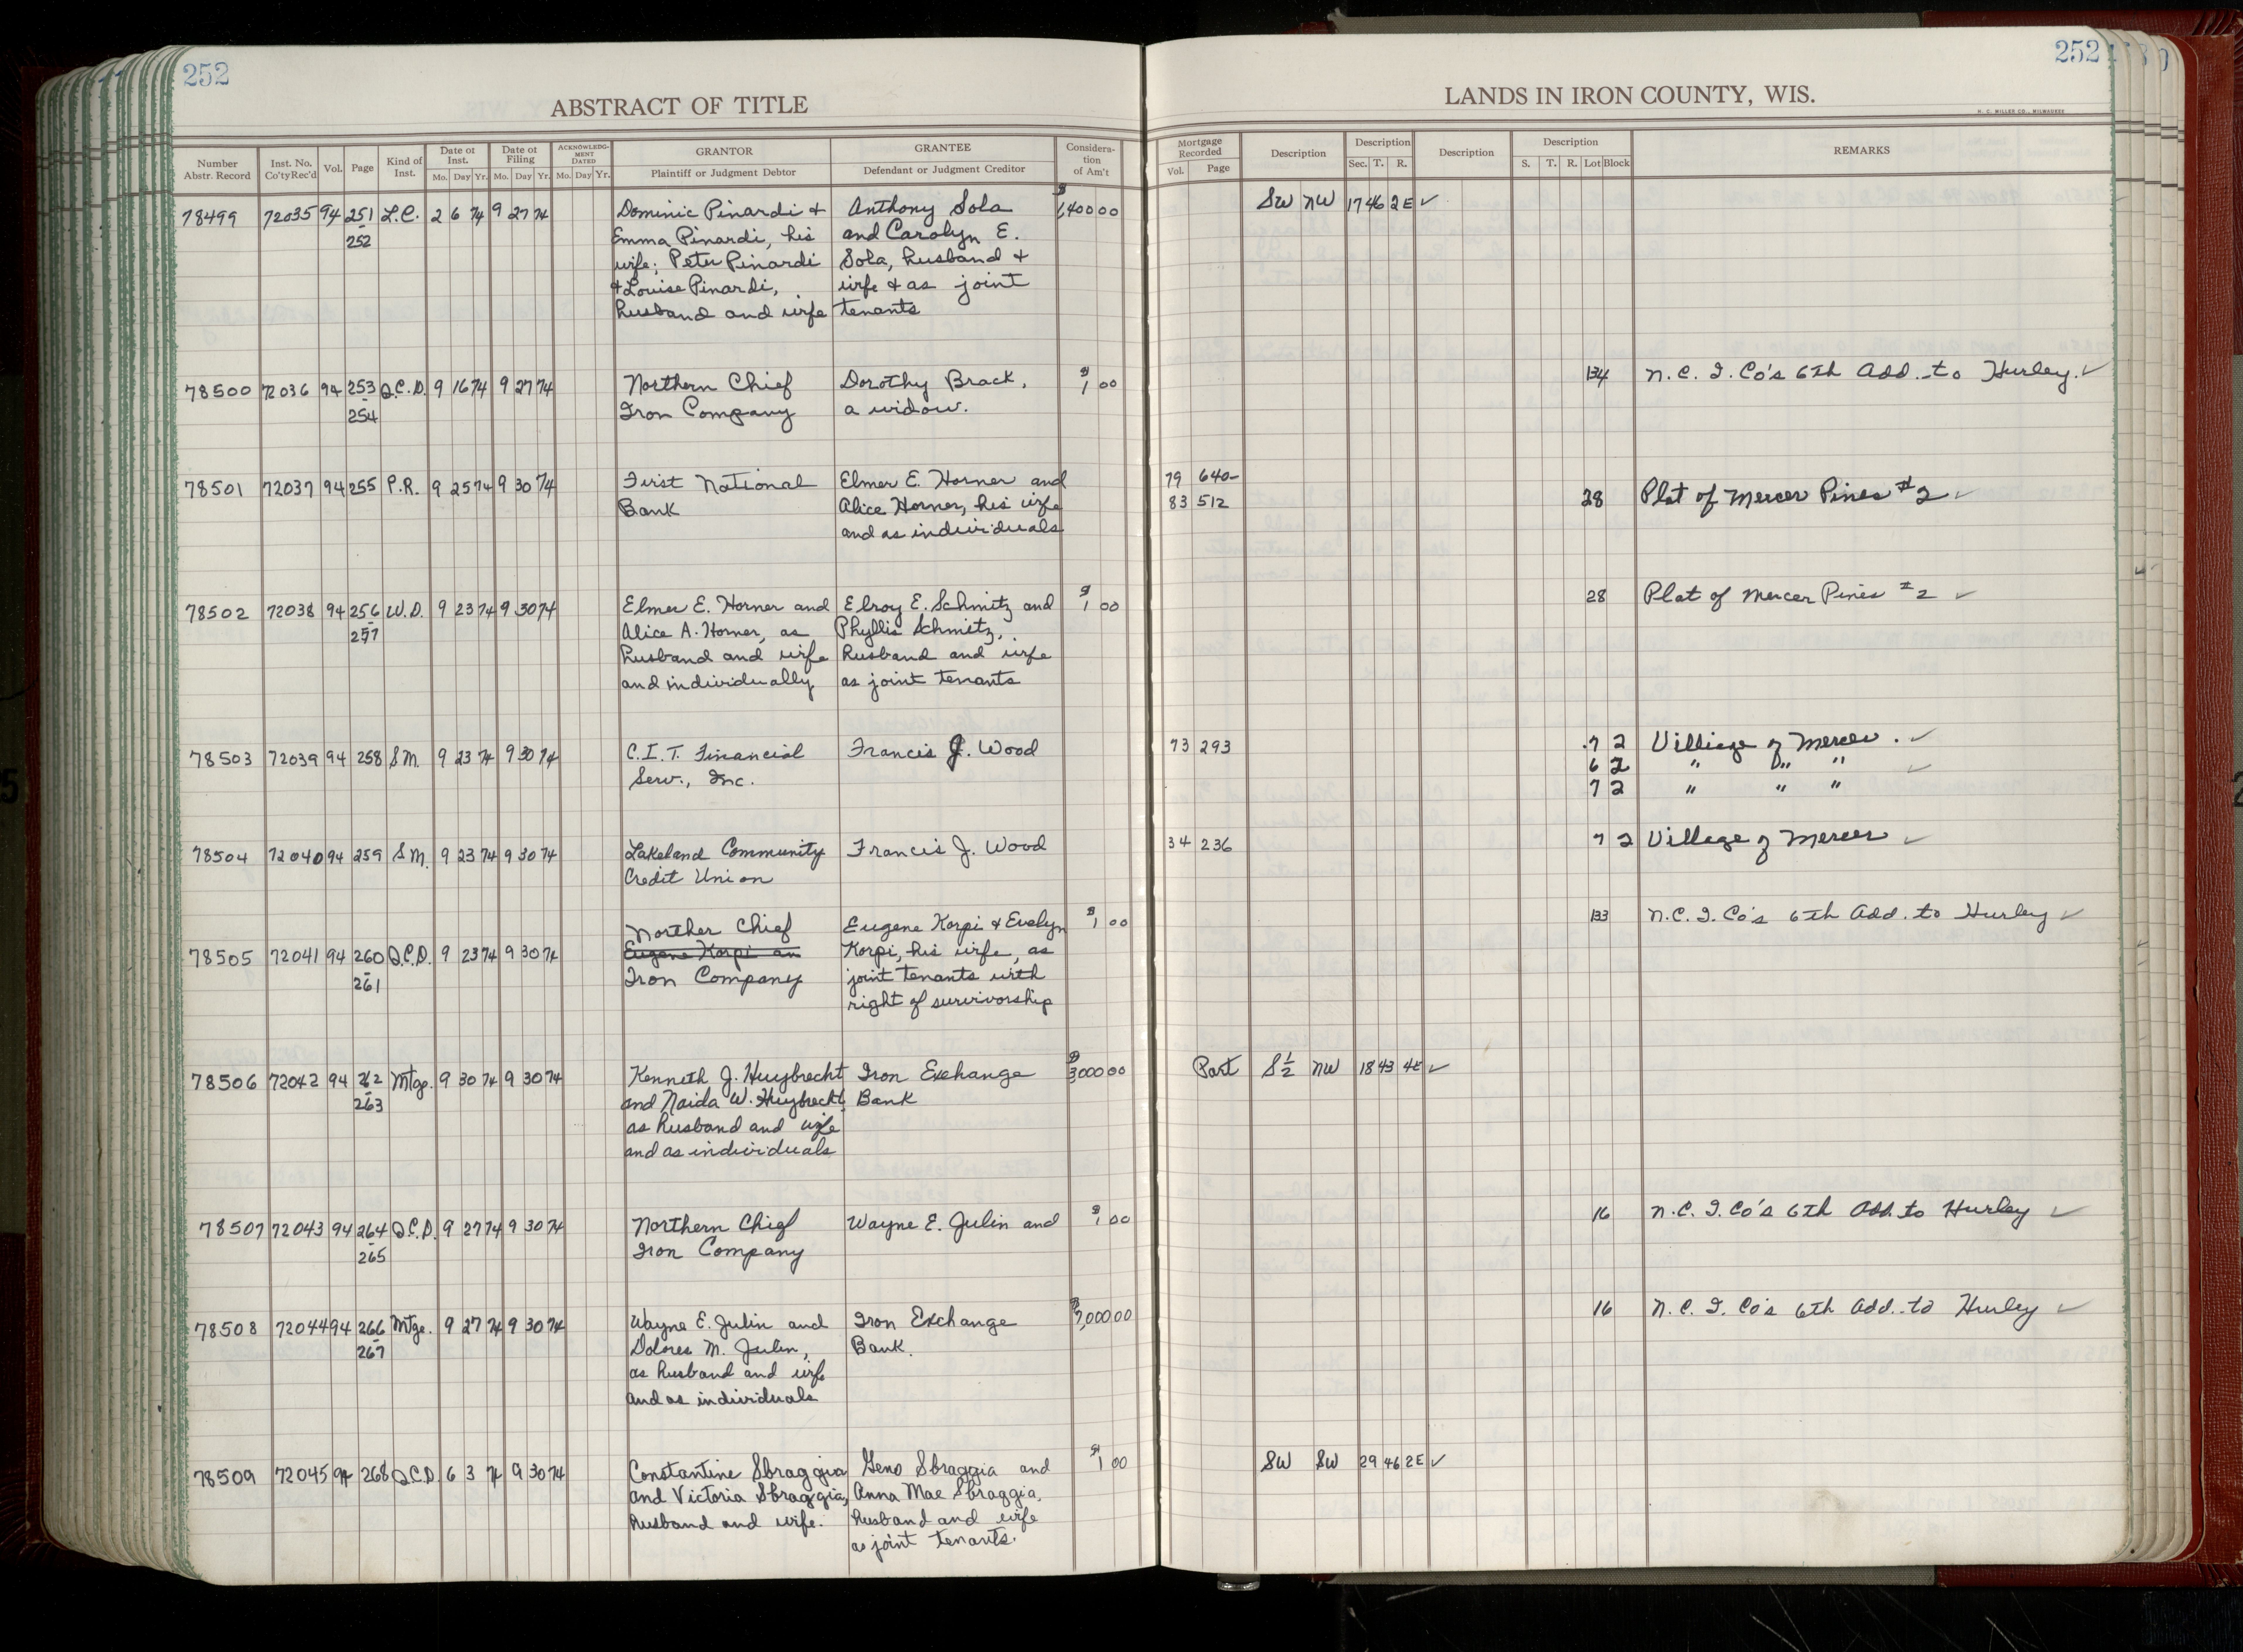 252
252
ABSTRACT OF TITLE
LANDS IN IRON COUNTY, WIS.
H. C. MILLER CO., MILWAUKEE
Number Abstr. Record Inst. No. Co'ty Rec'd Vol. Page Kind of Inst. Date of Inst. Mo. Day Yr. Date of Filing Mo. Day Yr. ACKNOWLEDGMENT DATED Mo. Day Yr. GRANTOR Plaintiff or Judgment Debtor GRANTEE Defendant or Judgment Creditor Consideration of Am't Mortgage Recorded Vol. Page Description Description Sec. T. R. Description Description S. T. R. Lot Block REMARKS
78499 72035 94 251 L.C. 2 6 74 9 27 74 Dominic Pinardi + Anthony Sola $1,400 00 SW NW 17 46 2E ✓
- 252 Emma Pinardi, his and Carolyn E.
wife; Peter Pinardi Sola, husband +
+ Louise Pinardi, wife + as joint
husband and wife tenants
78500 72036 94 253 Q.C.D. 9 16 74 9 27 74 Northern Chief Dorothy Brack, $1 00 134 N.C.I. Co's 6th Add. to Hurley. ✓
- 254 Iron Company a widow.
78501 72037 94 255 P.R. 9 25 74 9 30 74 First National Elmer E. Horner and 79 640- 28 Plat of Mercer Pines #2 ✓
Bank Alice Horner, his wife 83 512
and as individuals
78502 72038 94 256 W.D. 9 23 74 9 30 74 Elmer E. Horner and Elroy E. Schmitz and $1 00 28 Plat of Mercer Pines #2 ✓
- 257 Alice A. Horner, as Phyllis Schmitz,
husband and wife husband and wife
and individually as joint tenants
78503 72039 94 258 S.M. 9 23 74 9 30 74 C.I.T. Financial Francis J. Wood 73 293 7 2 Villiage of Mercer. ✓
Serv., Inc. 6 2 " " " ✓
7 2 " " "
78504 72040 94 259 S.M. 9 23 74 9 30 74 Lakeland Community Francis J. Wood 34 236 7 2 Village of Mercer ✓
Credit Union
Norther Chief Eugene Korpi + Evelyn $1 00 133 N.C.I. Co's 6th Add. to Hurley ✓
78505 72041 94 260 Q.C.D. 9 23 74 9 30 74 Eugene Korpi an Korpi, his wife, as
- 261 Iron Company joint tenants with
right of survivorship
78506 72042 94 262 Mtge. 9 30 74 9 30 74 Kenneth J. Huybrecht Iron Exchange $3,000 00 Part S½ NW 18 43 4E ✓
- 263 and Naida W. Huybrecht, Bank
as husband and wife
and as individuals
78507 72043 94 264 Q.C.D. 9 27 74 9 30 74 Northern Chief Wayne E. Julin and $1 00 16 N.C.I. Co's 6th Add. to Hurley ✓
- 265 Iron Company
78508 72044 94 266 Mtge. 9 27 74 9 30 74 Wayne E. Julin and Iron Exchange $7,000 00 16 N.C.I. Co's 6th Add. to Hurley ✓
- 267 Dolores M. Julin, Bank.
as husband and wife
and as individuals
78509 72045 94 268 Q.C.D. 6 3 74 9 30 74 Constantine Sbraggia Geno Sbraggia and $1 00 SW SW 29 46 2E ✓
and Victoria Sbraggia, Anna Mae Sbraggia,
husband and wife. husband and wife
as joint tenants.